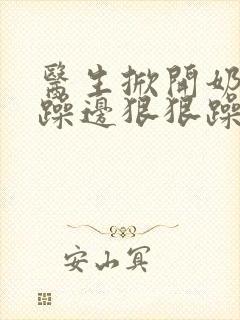 醫生掀開奶
躁邊狠狠躁
安山冥